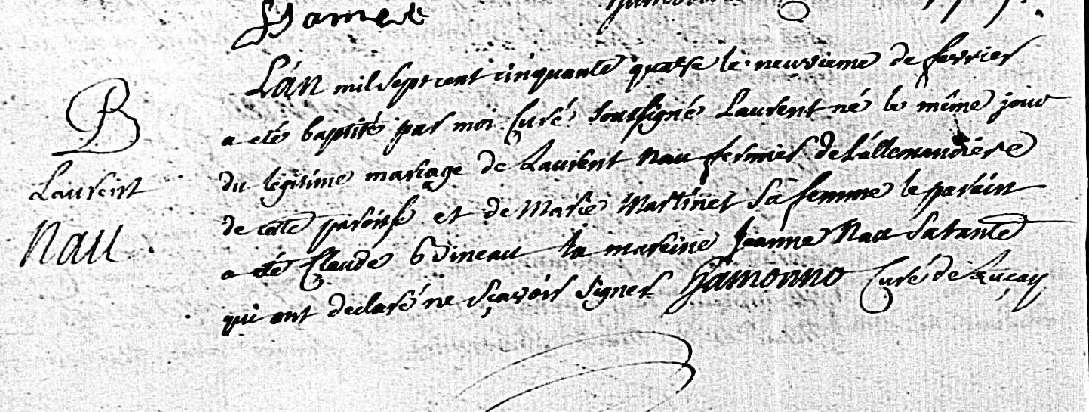 B
Laurent
Nau
L'an mil sept cent cinquante quatre le neuvieme de fevrier
a eté baptisé par moi Curé soussigné Laurent né le même jour
du légitime mariage de Laurent Nau fermier de l'allemandiere
de cette paroisse et de Marie Martinet sa femme le parain
a eté Claude la maraine Jeanne Nau sa tante
qui ont declaré ne sçavoir signer Hamonno Curé de Luçay